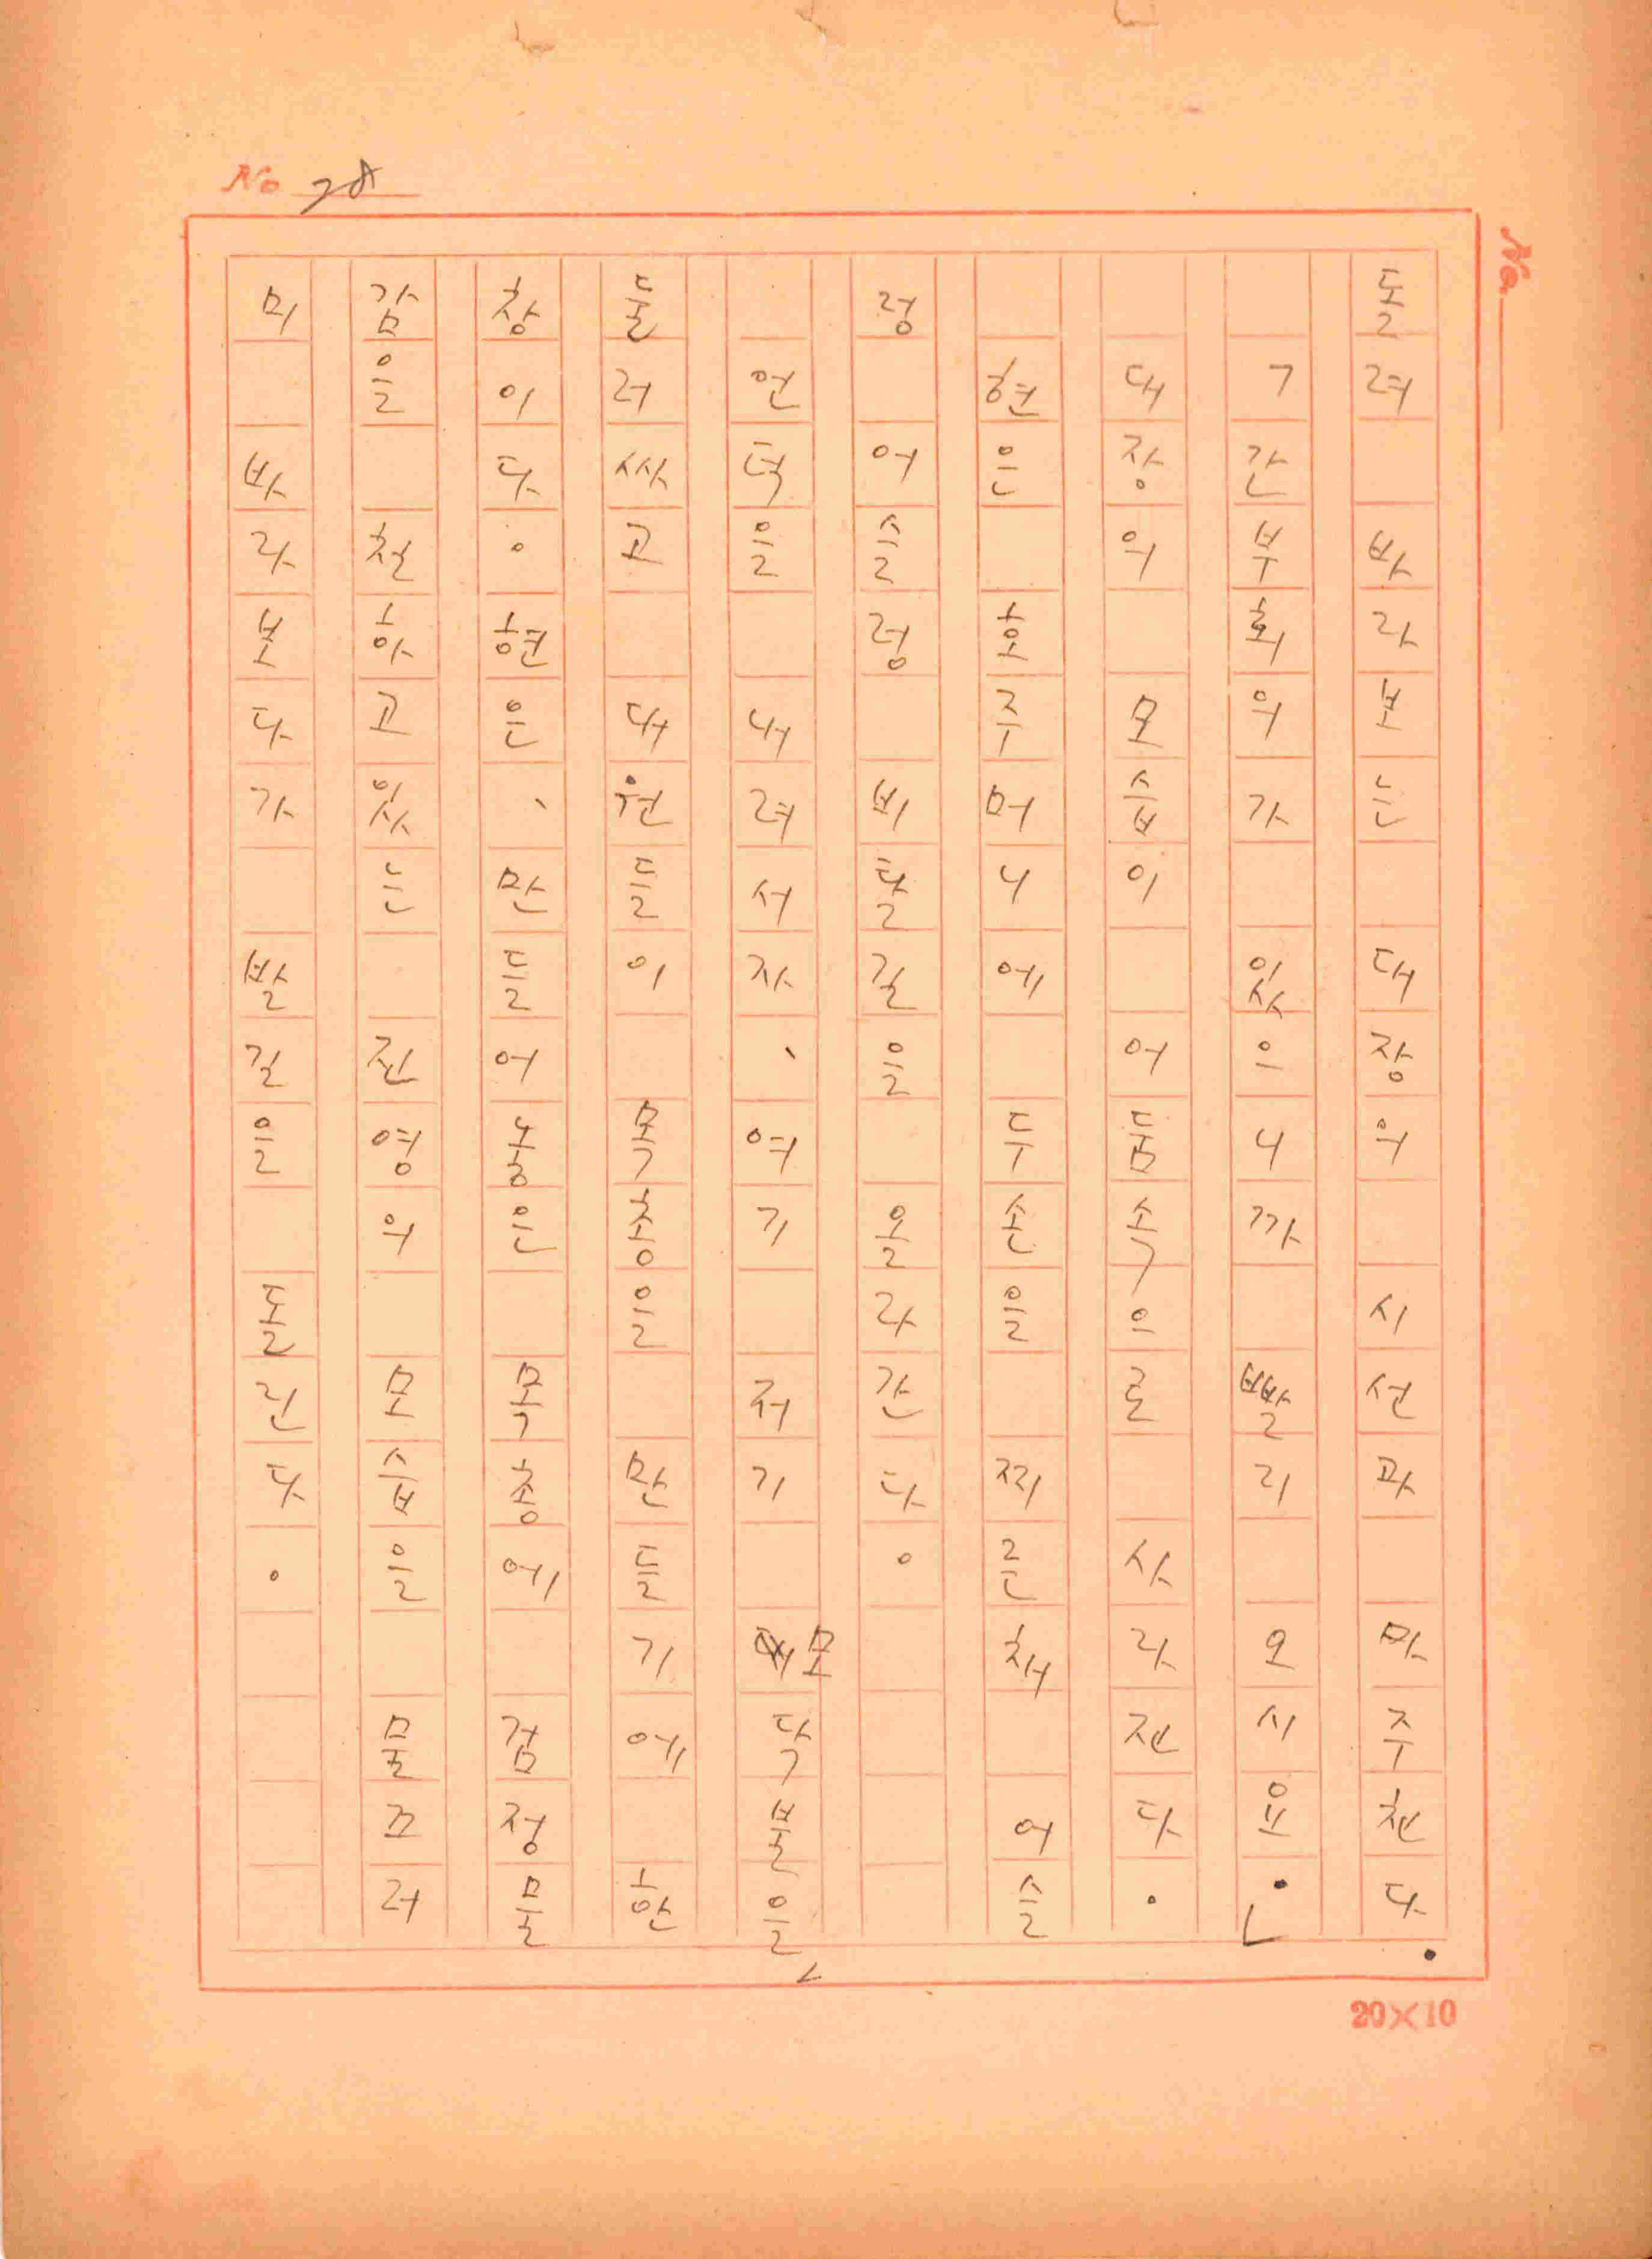 No
No.
돌려 바라보는 대장의 시선과 마주친다.
「간부회의가 있으니까 빨리 오시요.」
대장의 모습이 어둠속으로 사라진다.
현은 호주머니에 두손을 찌른채 어슬
렁 어슬렁 비탈길을 올라간다.
언덕을 내려서자、여기 저기 모닥불을
둘러싸고 대원들이 목총을 만들기에 한
창이다. 현은、만들어놓은 목총에 검정물
감을 칠하고있는 진영의 모습을 물끄러
미 바라보다가 발길을 돌린다.
20×10